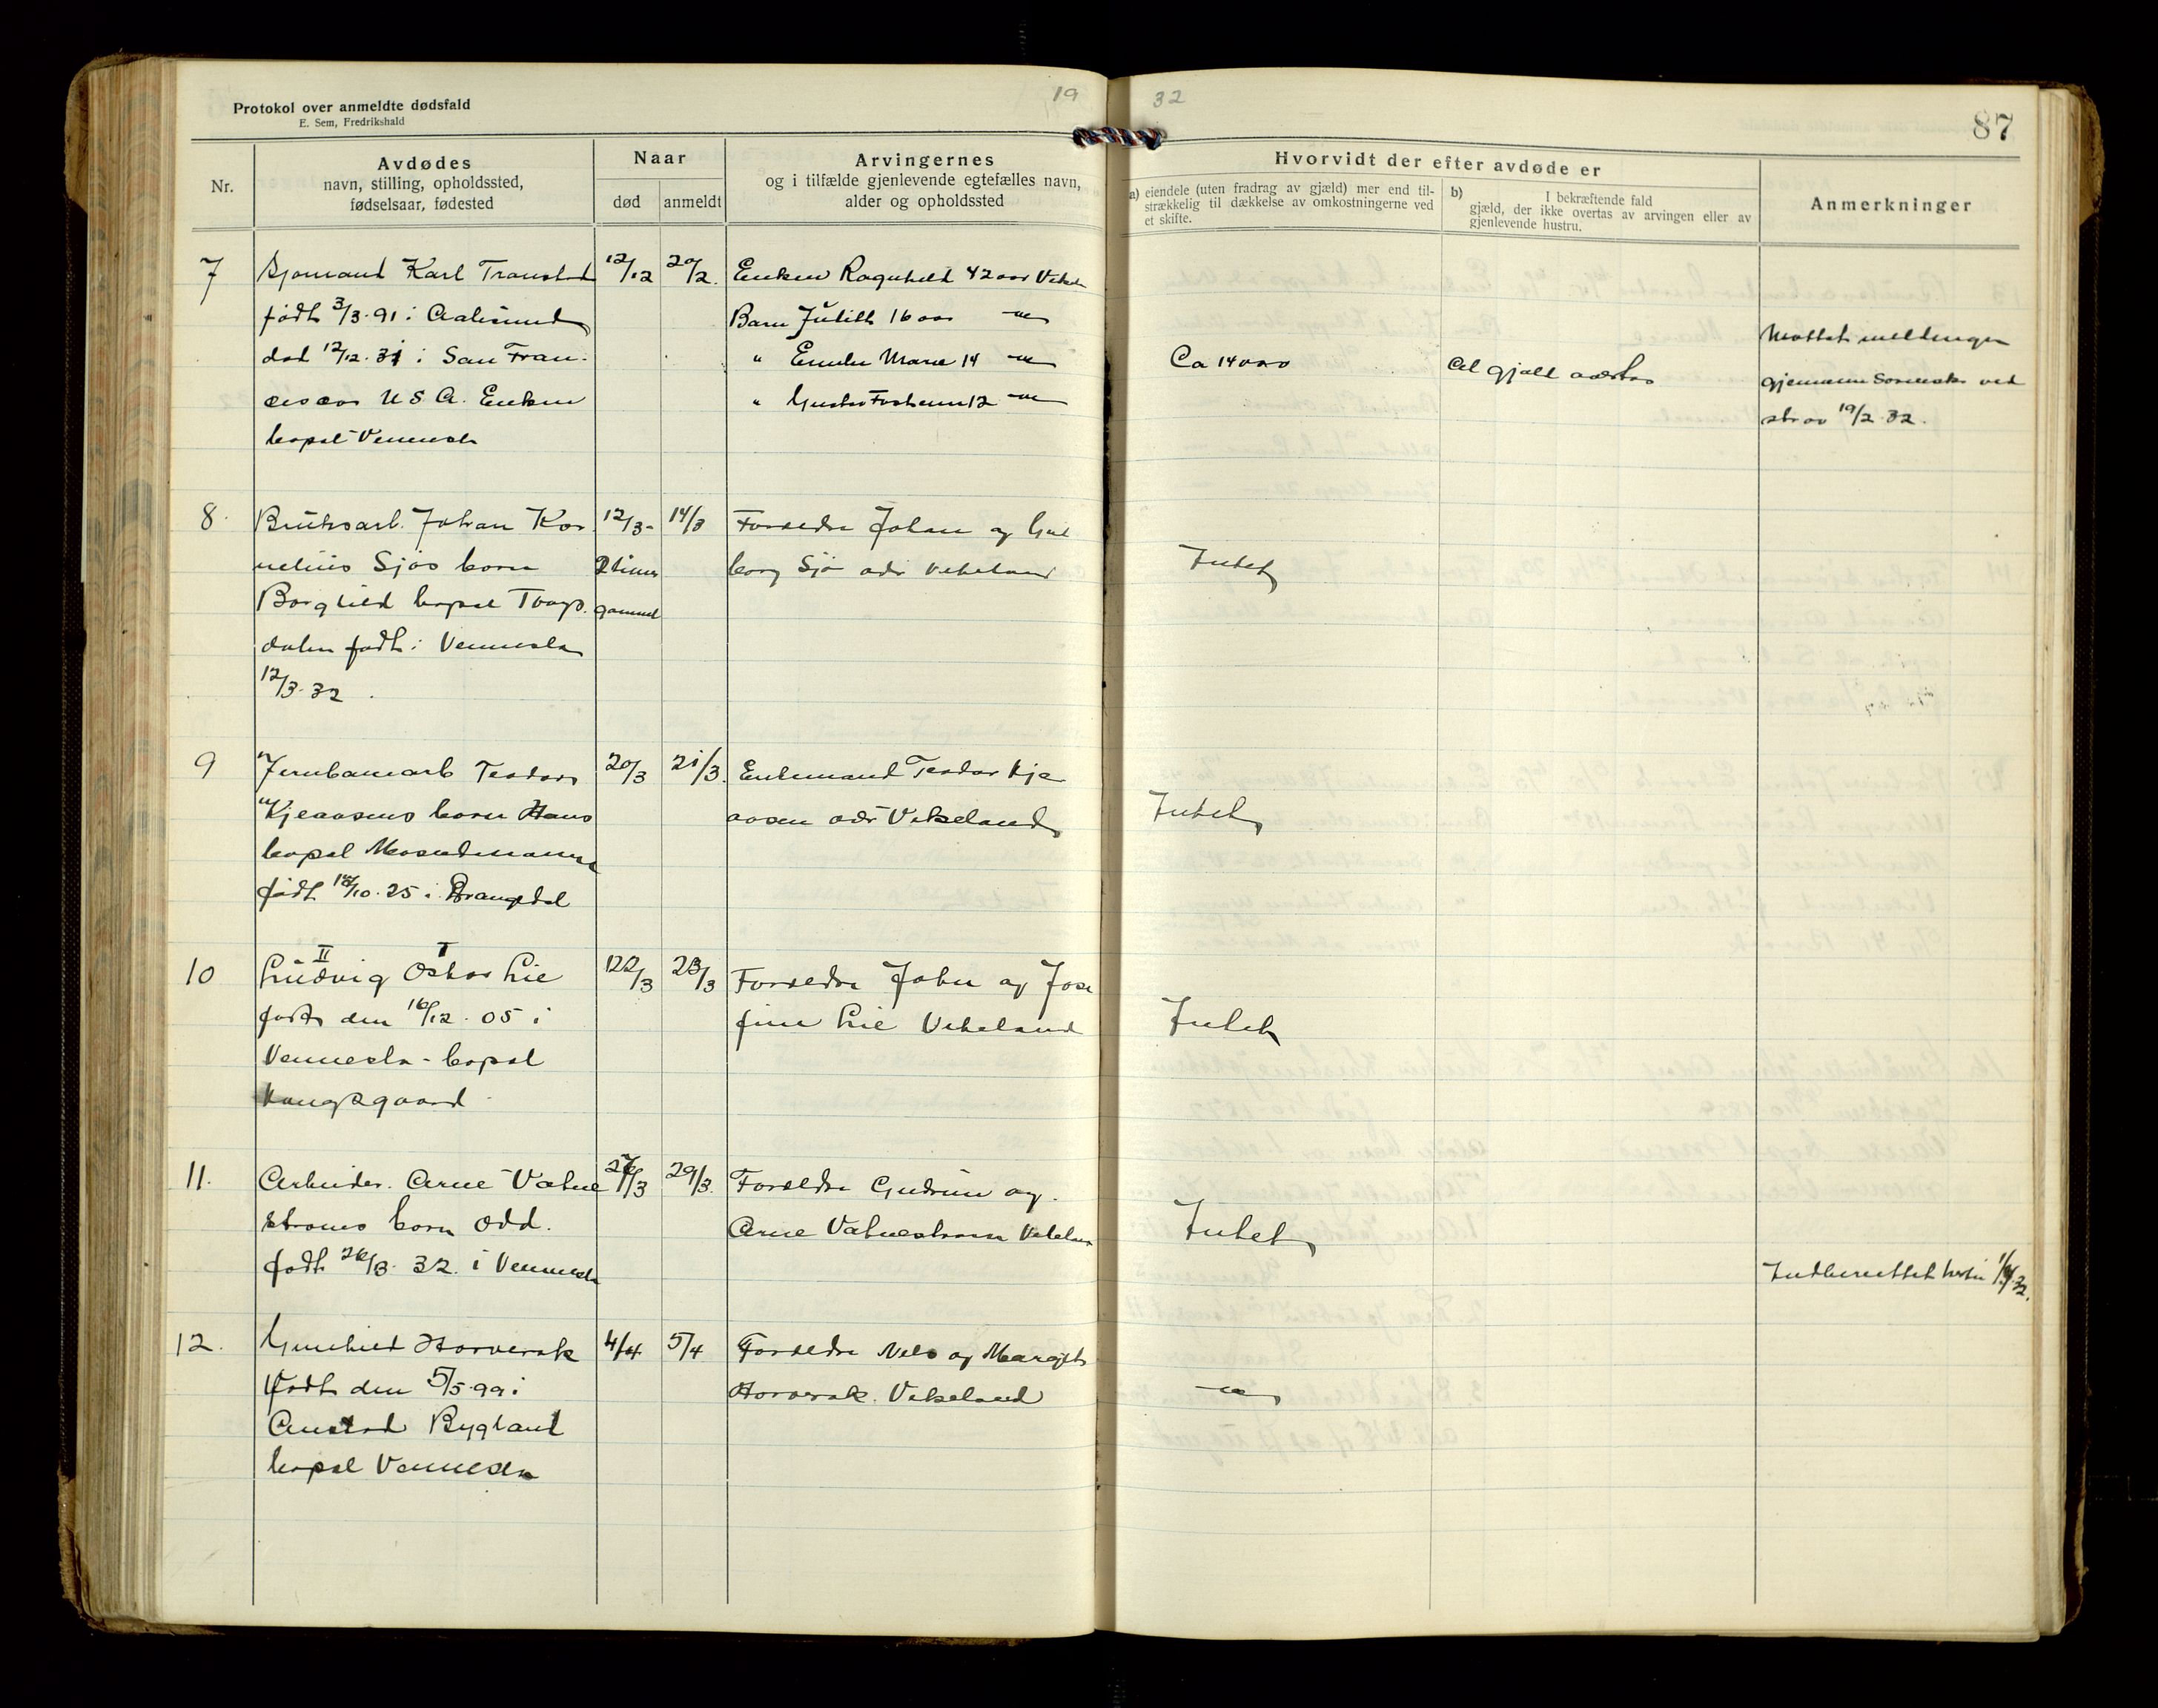 Protokol over anmeldte dødsfald
E. Sem, Fredrikshald
19
32
87
Nr.
Avdødes
navn, stilling, opholdssted,
fødselsaar, fødested
Naar
død
anmeldt
Arvingernes
og i tilfælde gjenlevende egtefælles navn,
alder og opholdssted
Hvorvidt der efter avdøde er
a) eiendele (uten fradrag av gjæld) mer end til-
strækkelig til dækkelse av omkostningerne ved
et skifte.
b) I bekræftende fald
gjæld, der ikke overtas av arvingen eller av
gjenlevende hustru.
Anmerkninger
7
Sjømand Karl
født 3/3-91 i Aalesund
død 12/12.31 i San Fran-
cisco U S A. Enken
bopæl Vennesla
12/12
20/2.
Enken Ragnhild 42 aar
Barn Judith 16 aar
" Marie 14
" 12
Ca 14000
al gjæld
Mottat meldingen
gjennem ved
skriv 19/2 32.
8.
Bruksarb. Johan Kor
nelius Sjøs barn
Borghild bopæl
dalen født i Vennesla
12/3-32
12/3-
2 timer
gammel
14/3
Forældre Johan og Gul
borg Sjø adr Vikeland
Intet
9
Jernbanearb Teodor
Kjeaasens barn Hans
bopæl Mosedmoen
født /10-25 i Drangedal
20/3
21/3.
Enkemand Teodor Kje
aasen adr Vikeland
Intet
10
II I
Ludvig Oskar Lie
født den 16/12. 05 i
Vennesla - bopæl
Kongsgaard
22/3
23/3
Forældre John og Jose
fine Lie Vikeland
Intet
11.
Arbeider. Arne Vatne
strøms barn Odd.
født 26/3. 32. i Vennesla
/3
29/3.
Forældre Gudrun og
Arne Vatnestrøm Vikeland
Intet
Indberettet 32.
12.
Gunhild Horverak
født den 5/5-99 i
Austad Bygland
bopæl Vennesla
4/4
5/4
Forældre Nils og Margit
Horverak. Vikeland